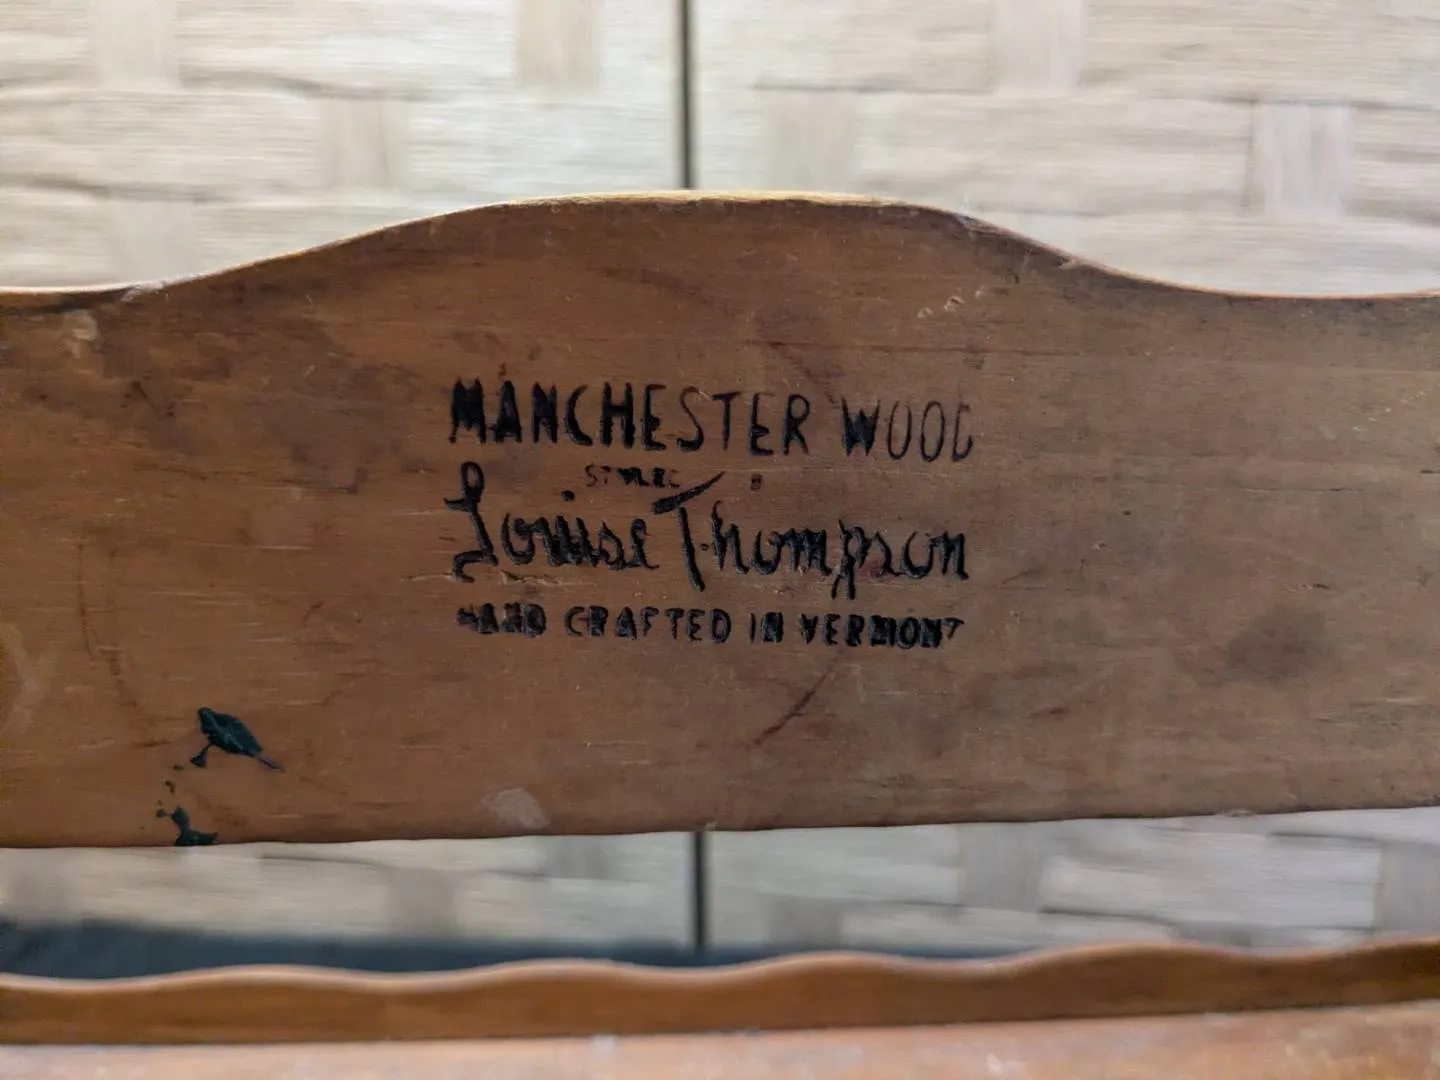 MANCHESTER WOOD
STYLED BY
Louise Thompson
HAND CRAFTED IN VERMONT